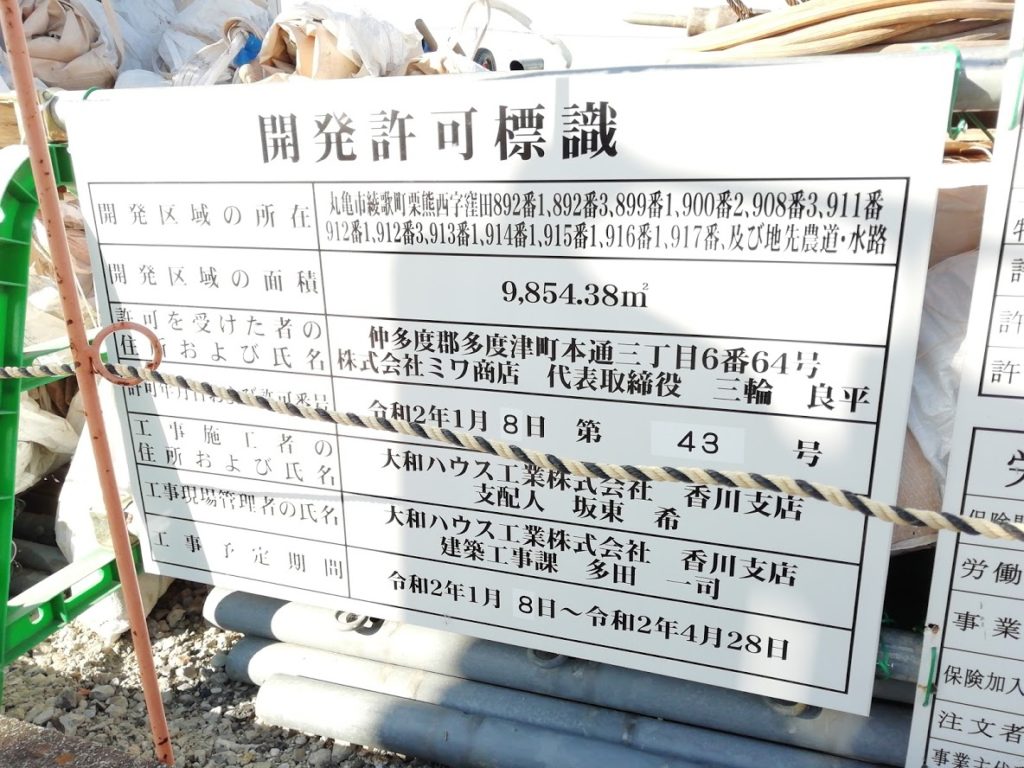 開発許可標識
開発区域の所在
丸亀市綾歌町栗熊西字窪田892番1,892番3,899番1,900番2,908番3,911番
912番1,912番3,913番1,914番1,915番1,916番1,917番、及び地先農道・水路
開発区域の面積
9,854.38㎡
許可を受けた者の
住所および氏名
仲多度郡多度津町本通三丁目6番64号
株式会社ミワ商店 代表取締役 三輪 良平
許可年月日および許可番号
令和2年1月 8日 第 43 号
工事施工者の
住所および氏名
大和ハウス工業株式会社 香川支店
支配人 坂東 希
工事現場管理者の氏名
大和ハウス工業株式会社 香川支店
建築工事課 多田 一司
工事予定期間
令和2年1月 8日～令和2年4月28日
許
許
労
保険
労働
事業
保険加入
注文者
事業主代